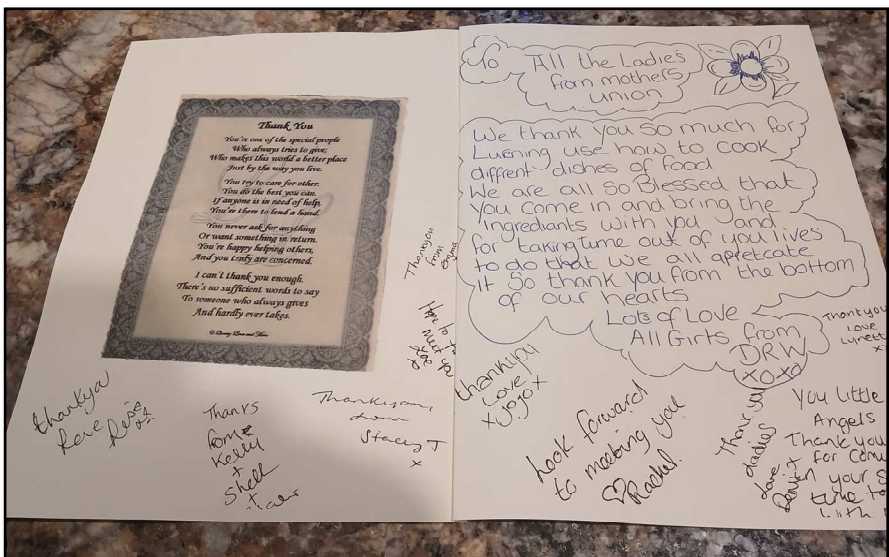 Thank You
You're one of the special people
Who always tries to give;
Who makes this world a better place
Just by the way you live.
You try to care for other.
You do the best you can.
If anyone is in need of help,
You're there to lend a hand.
You never ask for anything
Or want something in return.
You're happy helping others,
And you truly are concerned.
I can't thank you enough.
There's no sufficient words to say
To someone who always gives
And hardly ever takes.
Thankyou
from
Hope to
Meet you
thankya
Love
Thanks
from
Kelly
+
Shell
+
Thankyou
Love
Stacey J
x
To All the Ladies
from mothers
union
We thank you so much for
Lurning use how to cook
diffrent dishes of food
We are all so Blessed that
you come in and bring the
Ingrediants with you and
for taking Tume out of you lives
to do that we all appretcate
it So thank you from the bottom
of our hearts
Lots of Love
All Girls from
DRW
xoxo
Thankyou
Love
Lynett
x
thankyou
Love
x Jojo x
Look forward
to meeting you
Rachel.
Thank you
ladies
Love
You little
Angels
Thank you
for
in your
time to
with